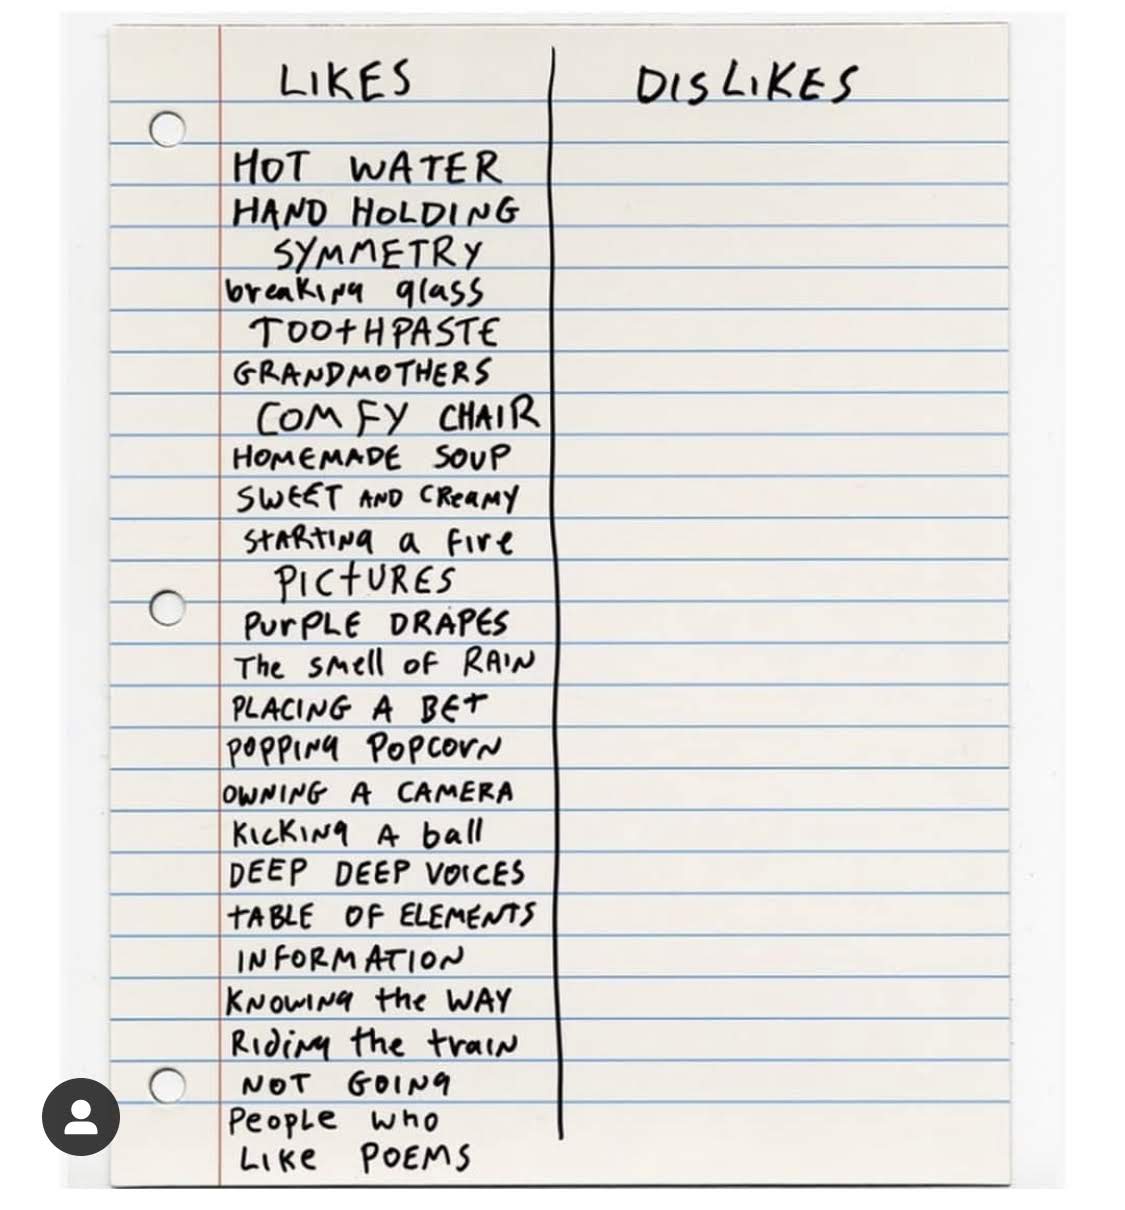 LIKES
DISLIKES
HOT WATER
HAND HOLDING
SYMMETRY
breaking glass
TOOtHPASTE
GRANDMOTHERS
COMFY CHAIR
HOMEMADE SOUP
SWEET AND CReAMY
StARTING a fire
PICtURES
PurPLE DRAPES
The smell of RAIN
PLACING A BEt
POPPING POPCORN
OWNING A CAMERA
KICKING A ball
DEEP DEEP VOICES
tABLE OF ELEMENTS
INFORMATION
KNOWING the WAY
Riding the traIN
NOT GOING
People who
LIKe POEMS